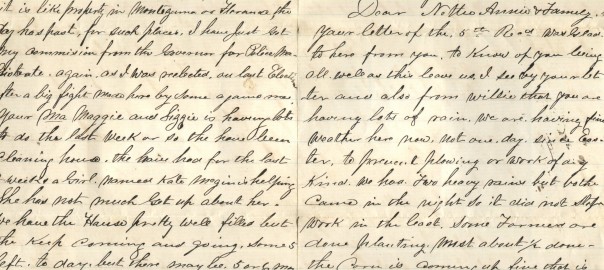 it is like property in Montezuma or Florance, the
day has past, for such places, I have Just Got
my commission from the Governor for Police Ma-
gistrate. again, as I was reelected, on last Elect
after a big fight made here by Some against me
Your Ma Maggie and Lizzie is having lots
to do the last week or so the have been
cleaning house. the have had for the last
2 weeks a Girl. named Kate Magin is helping
She has not much Got up about her.
we have the House pretty well filled but
the Keep coming and going, Some 5
left. to day, but there may be. 5 or 6 mo
Dear Nettie Annie & Family.
Your letter of the 5th Recd was Glad.
to here from you. to Know of you being
all. well as this leave us, I see by your let
ter and also from willie that you are
having lots of rain. we are. having fine
weather here now. not one. day. since Eas-
ter, to prevent plowing or work of any
Kind. we had. Two heavy rains but bothe
Came in the night so it did not Stop
work in the least. Some Farmers are
done planting. Most about ½ done-
the Corn is coming up fine that is